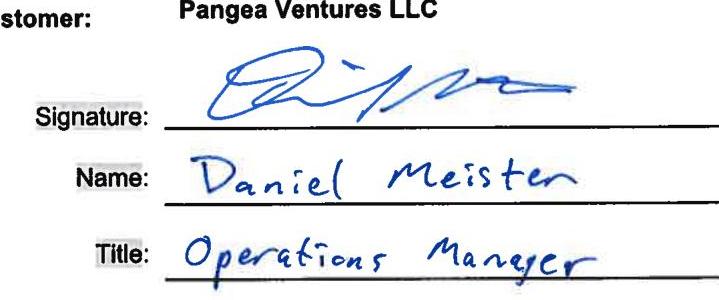 stomer: Pangea Ventures LLC
Signature:
Name: Daniel Meister
Title: Operations Manager